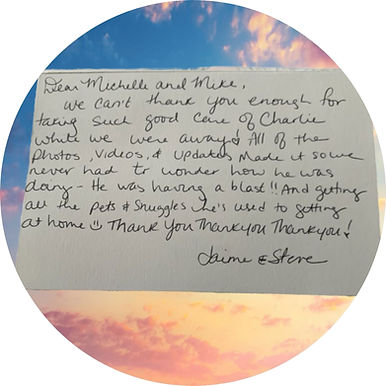 Dear Michelle and Mike,
We can't thank you enough for
taking such good care of Charlie
while we were away! All of the
Photos, Videos, & Updates Made it so we
never had to wonder how he was
doing - He was having a blast!! And getting
all the Pets & Snuggles he's used to getting
at home ☺ Thank You Thank you Thank you!
Jaime & Steve